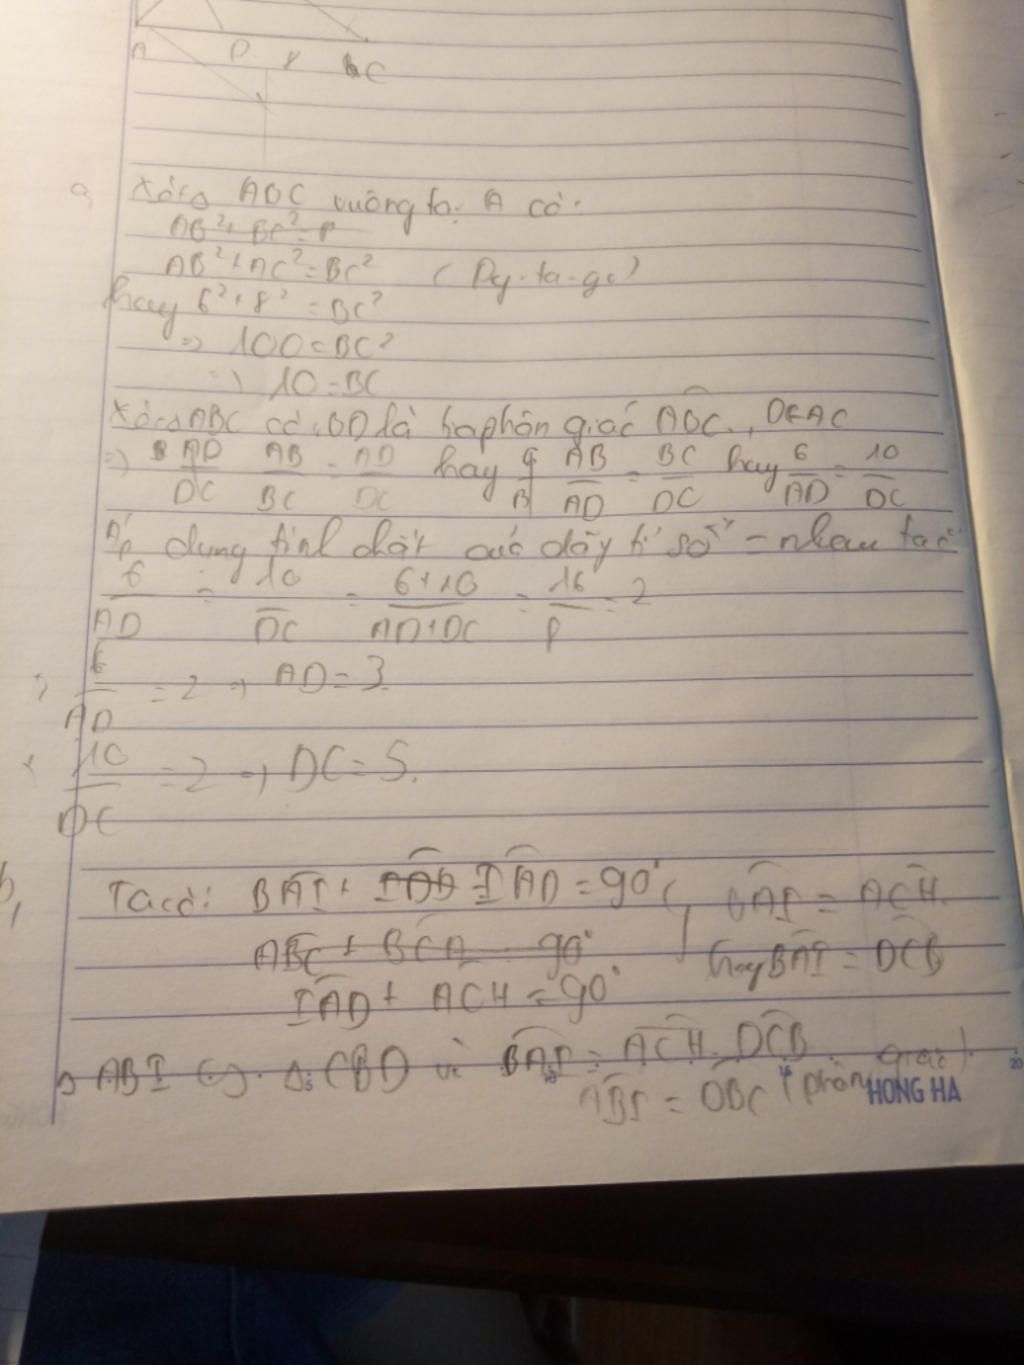 A D 8 C
a, Xét △ ABC vuông tại A có:
AB² + BC² = P
AB² + AC² = BC² (Py-ta-go)
hay 6² + 8² = BC²
=> 100 = BC²
=> 10 = BC
Xét △ ABC có: BD là phân giác ABC, D∈AC
=> AD/DC AB/BC = AD/DC hay AB/AD = BC/DC hay 6/AD = 10/DC
Áp dụng tính chất của dãy tỉ số = nhau ta có
6/AD = 10/DC = 6+10/AD+DC = 16/8 = 2
6/AD = 2 => AD = 3
10/DC = 2 => DC = 5.
b, Ta có: BAI + IAD = 90° BAI = ACH
ABC + BCA = 90° hay BAI = DCB
IAD + ACH = 90°
△ ABI ∽ △ CBD vì BAI = ACH. DCB
ABI = DBC (phân giác)
HONG HA